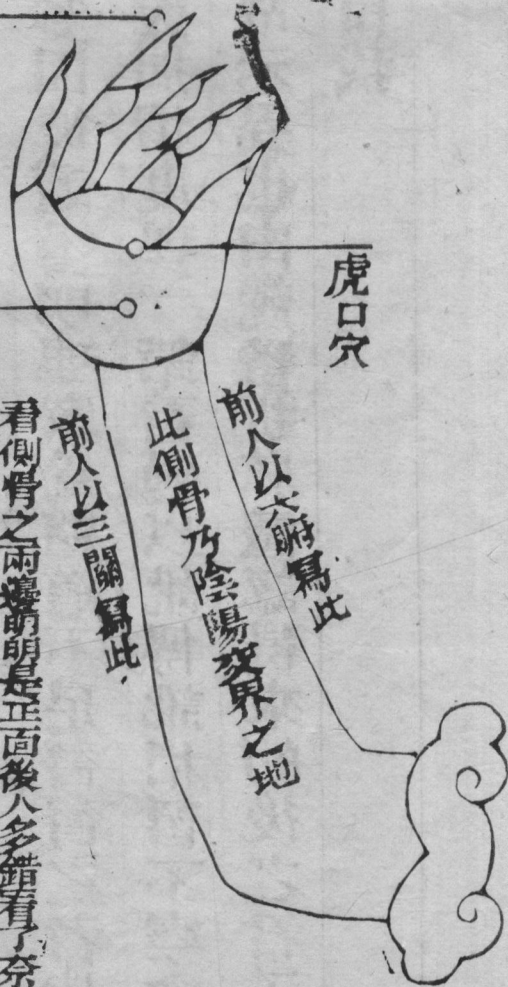 虎口穴
前人以六腑寫此
此側骨乃陰陽交界之地
前人以三關寫此
看側骨之兩邊明明是正面後人多錯看了奈